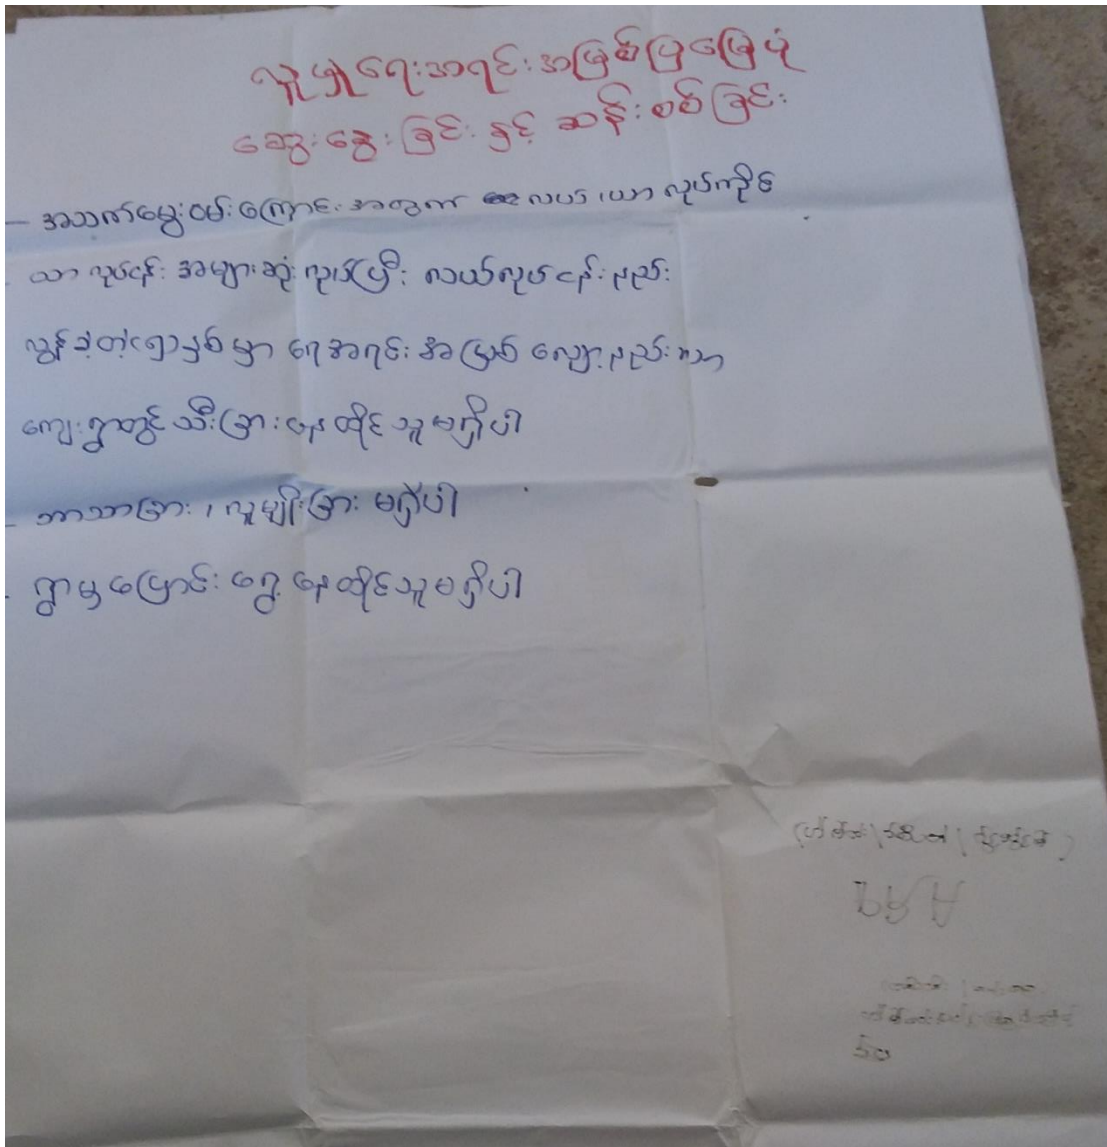 လူမှုရေးအရင်းအမြစ်ပြမြေပုံ
ဆွေးနွေးခြင်းနှင့် ဆန်းစစ်ခြင်း
- အသက်မွေးဝမ်းကြောင်းအတွက် လယ်၊ ယာ လုပ်ကိုင်
- ယာလုပ်ငန်း အများဆုံးလုပ်ပြီး လယ်လုပ်ငန်းနည်း
လွန်ခဲ့တဲ့ (၅) နှစ်မှာ ရေအရင်းအမြစ် လျော့နည်းလာ
ကျေးရွာတွင် သီးခြားနေထိုင်သူမရှိပါ
- ဘာသာခြား၊ လူမျိုးခြား မရှိပါ
- ရွာမှ ပြောင်းရွှေ့နေထိုင်သူမရှိပါ